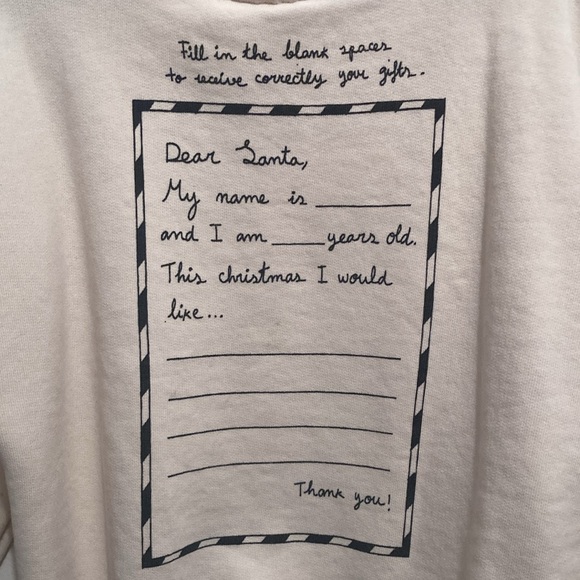 Fill in the blank spaces
to receive correctly your gifts.
Dear Santa,
My name is ________
and I am ____ years old.
This christmas I would
like...
Thank you!